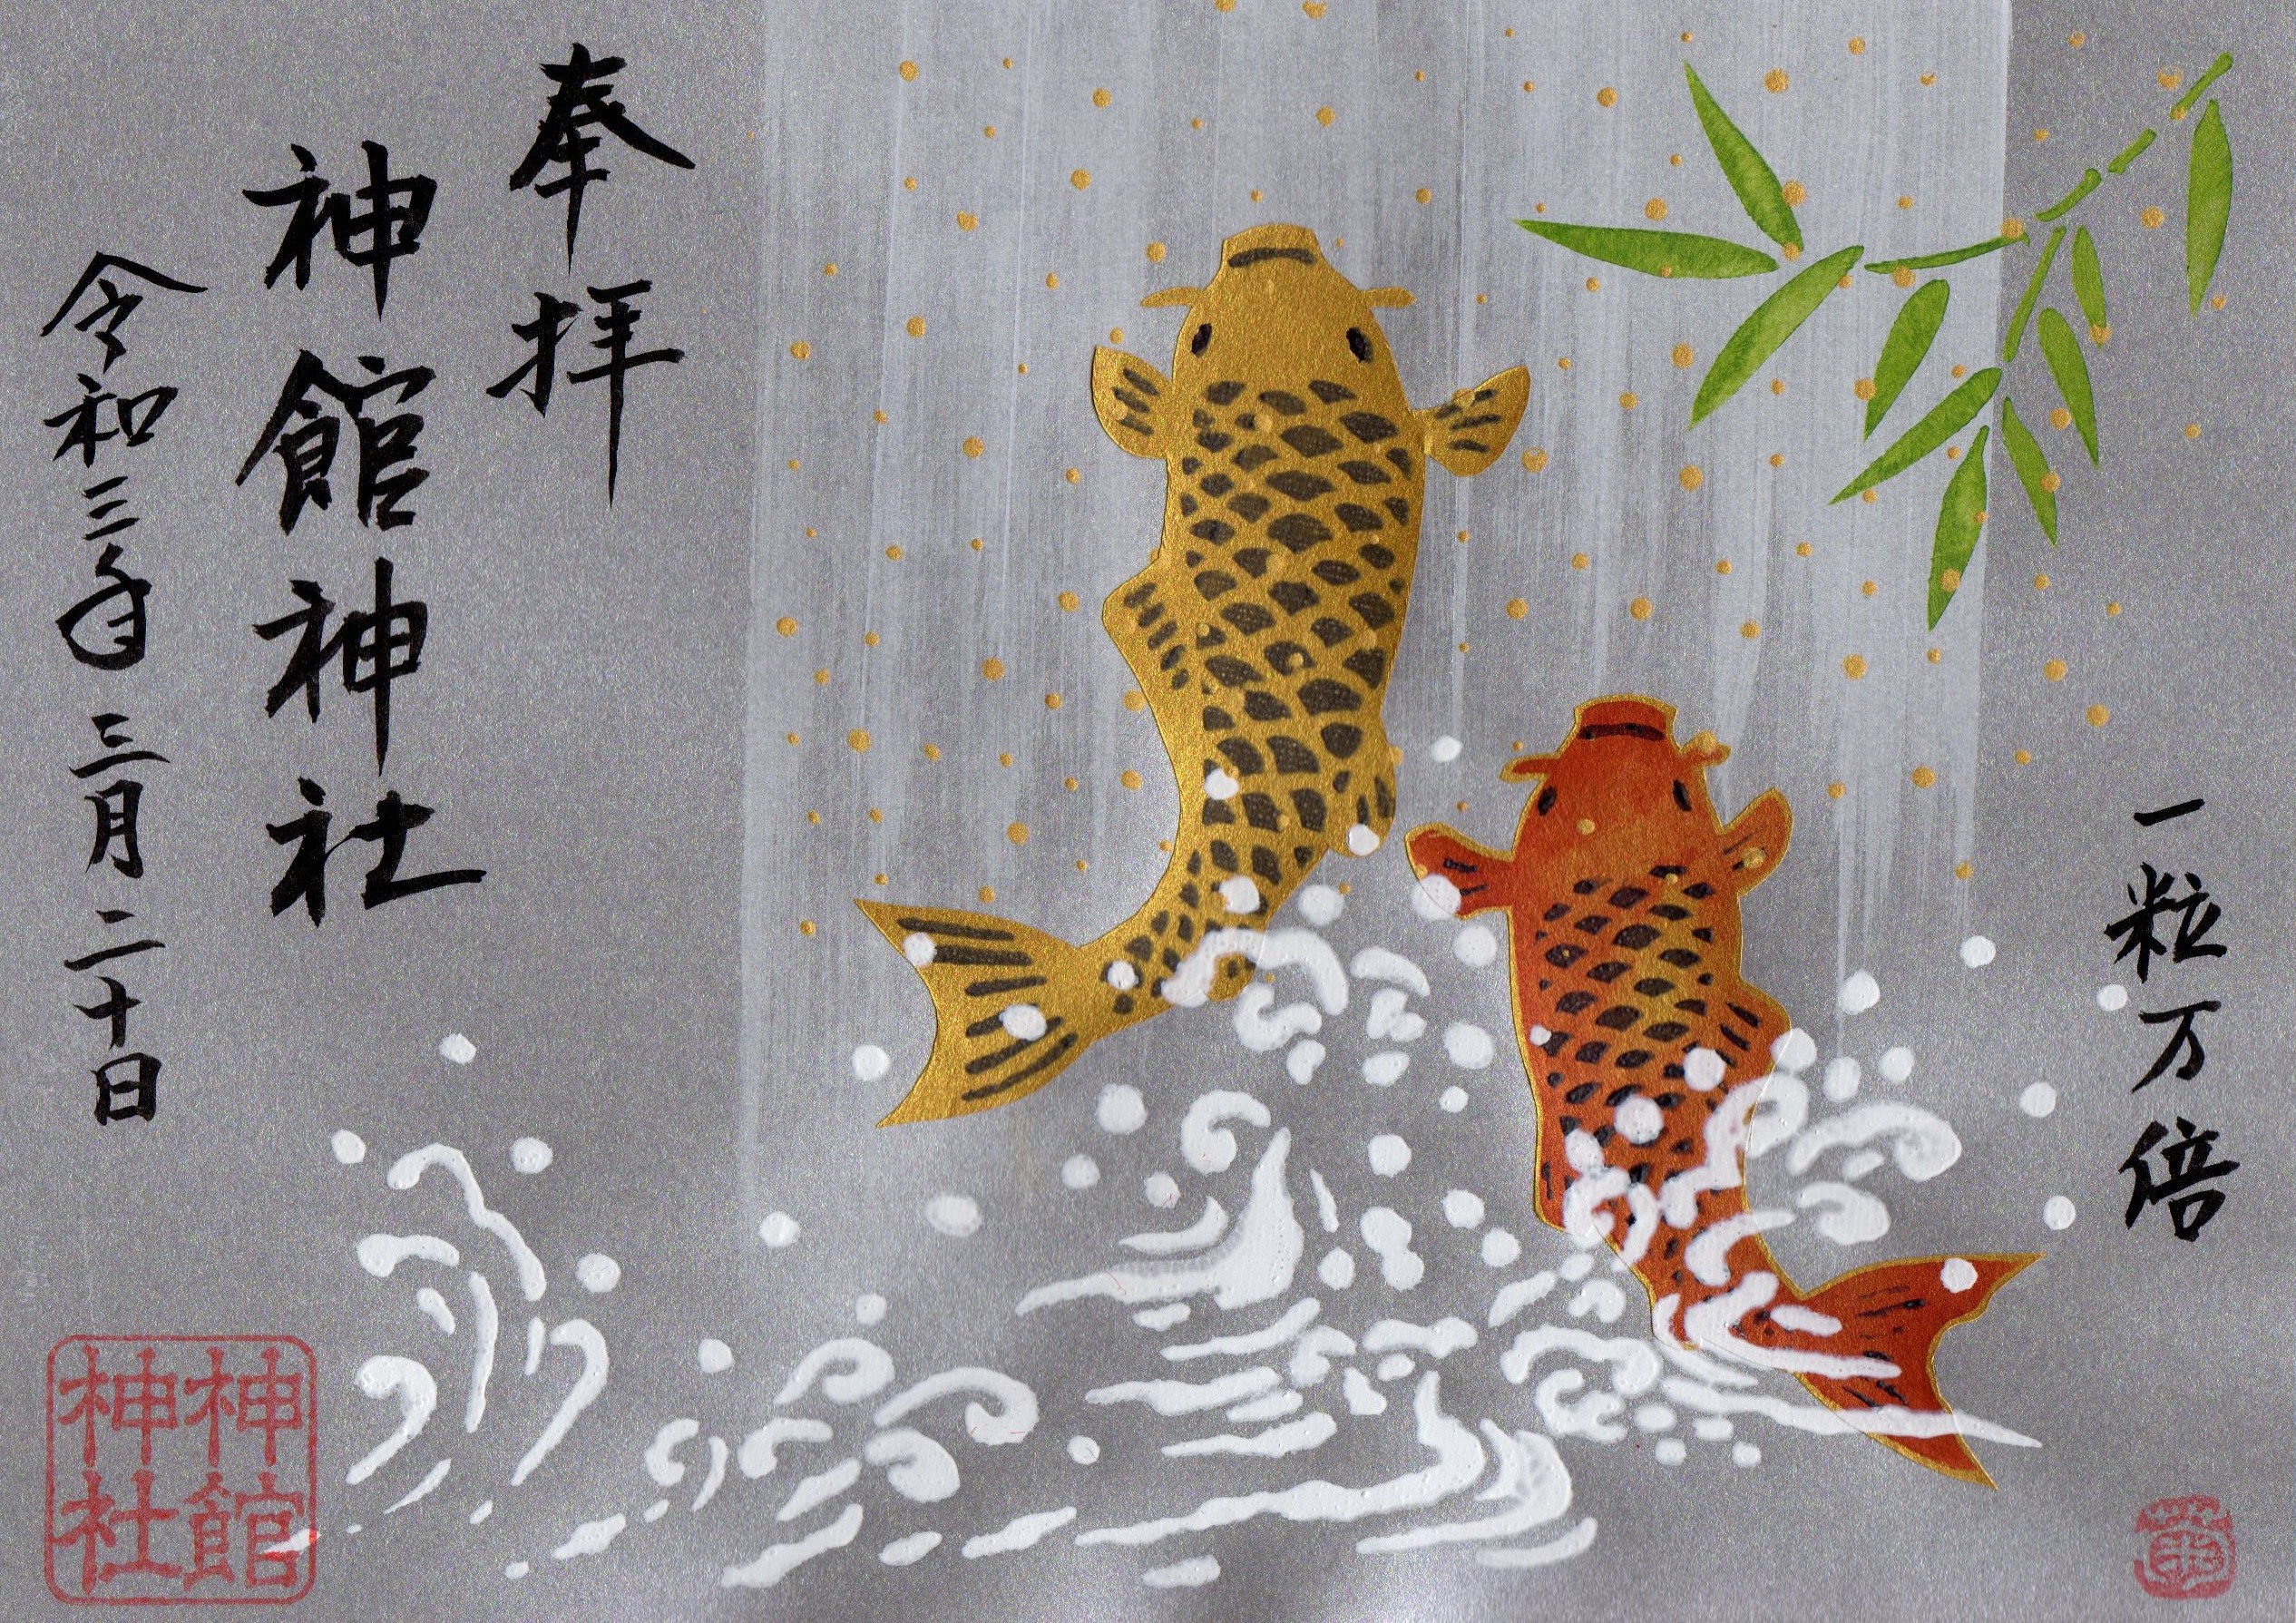 一粒万倍
奉拝
神館神社
令和三年三月二十日
神館
神社